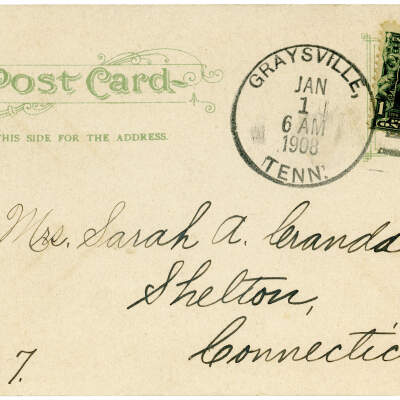 Post Card
THIS SIDE FOR THE ADDRESS.
GRAYSVILLE,
JAN
1
6 AM
1908
TENN.
1
Mrs. Sarah A. Cranda
Shelton,
Connectic
7.